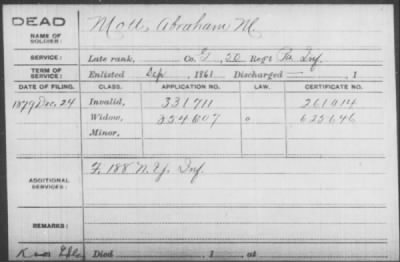 DEAD
NAME OF SOLDIER: Moll, Abraham M.
SERVICE: Late rank, Co. G, 50 Reg't Pa. Inf.
TERM OF SERVICE: Enlisted Sep, 1861 Discharged — , 1
DATE OF FILING. CLASS. APPLICATION NO. LAW. CERTIFICATE NO.
1879 Dec. 24 Invalid, 331711 261014
Widow, 254607 625646
Minor,
ADDITIONAL SERVICES: F. 188 N.Y. Inf.
REMARKS:
Died , 1 , at